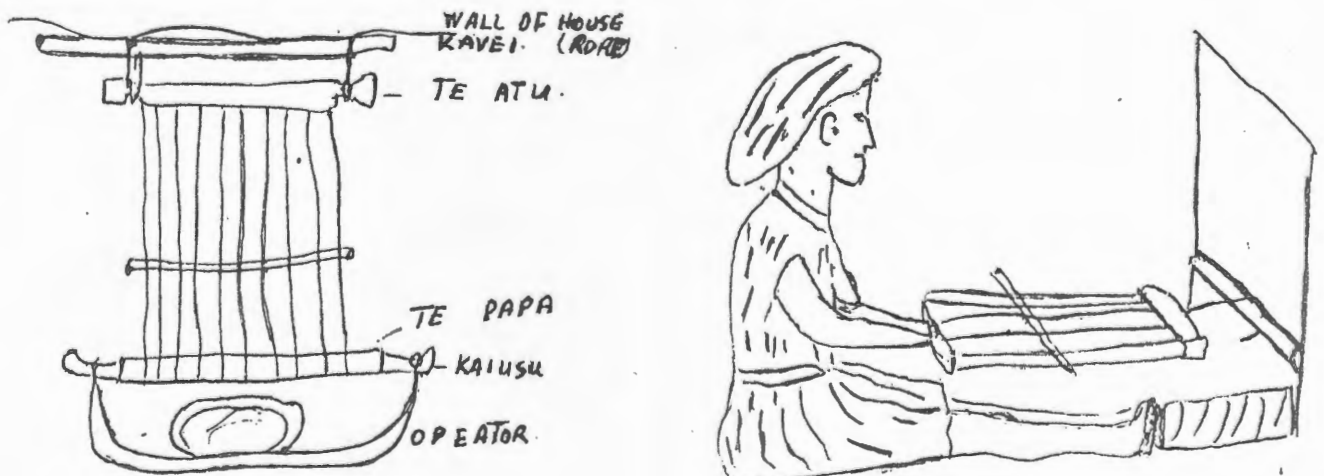 WALL OF HOUSE
KAVEI. (ROPE)
TE ATU.
TE PAPA
KAIUSU
OPEATOR.